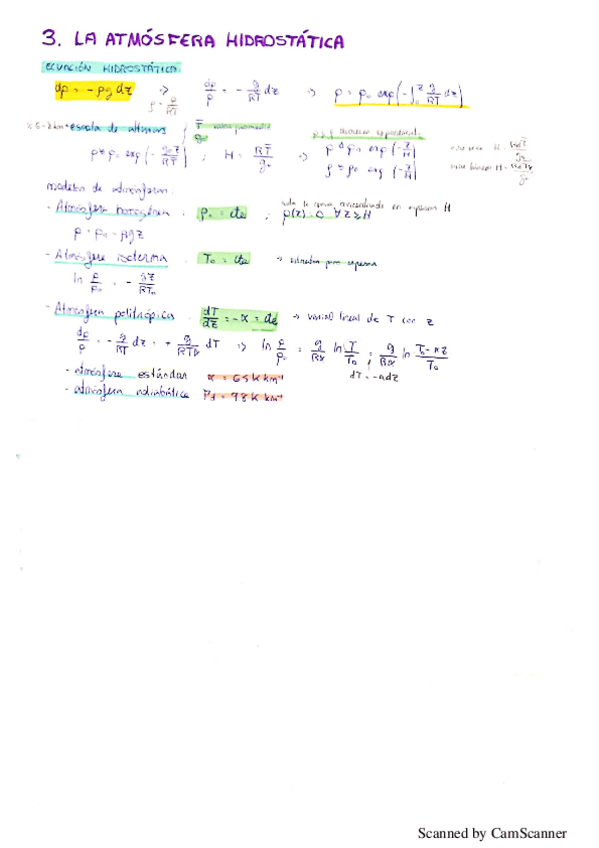 3. LA ATMÓSFERA HIDROSTÁTICA
ECUACIÓN HIDROSTÁTICA:
dp = -ρg dz ⇒ dp/p = - g/RT dz ⇒ p = p₀ exp(-∫₀ᶻ g/RT dz)
ρ = p/RT
escala de alturas
p ≃ p₀ exp(- g₀z/RT̄) ; H = RT̄/g₀ ⇒ p ≃ p₀ exp(-z/H)
ρ ≃ ρ₀ exp(-z/H)
modelos de atmósferas:
- Atmósfera homogénea : ρ₀ = cte , ρ(z) = 0 ∀ z ≥ H
p = p₀ - ρgz
- Atmósfera isoterma : T₀ = cte
ln p/p₀ = - gz/RT₀
- Atmósfera politrópica : dT/dz = -α = cte → variación lineal de T con z
dp/p = - g/RT dz = + g/RTα dT ⇒ ln p/p₀ = g/Rα ln T/T₀ = g/Rα ln T₀-αz/T₀
dT = -αdz
- atmósfera estándar α = 6,5 K km⁻¹
- atmósfera adiabática Γd = 9,8 K km⁻¹
Scanned by CamScanner